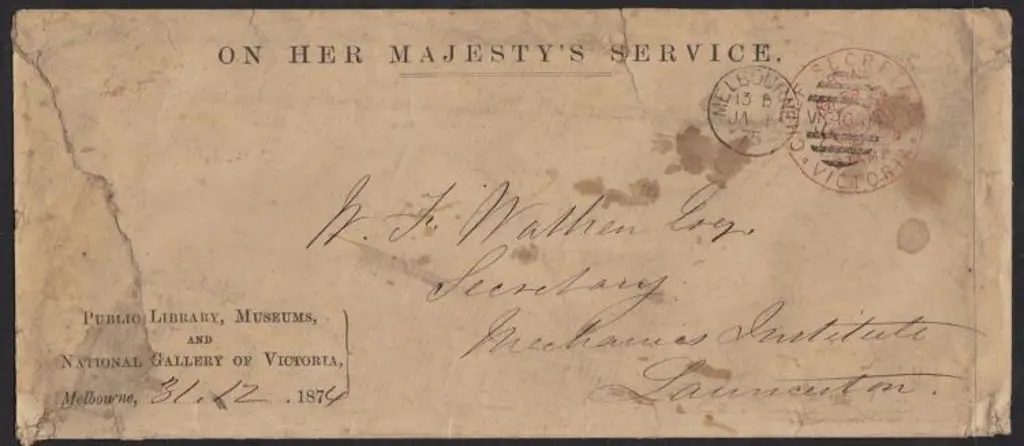 ON HER MAJESTY'S SERVICE.
MELBOURNE
13 B
JA 1
CHIEF SECRETARY
VICTORIA
W. F. Wathen Esq.
Secretary
Mechanics Institute
Launceston.
PUBLIC LIBRARY, MUSEUMS,
AND
NATIONAL GALLERY OF VICTORIA,
Melbourne, 31.12.1874